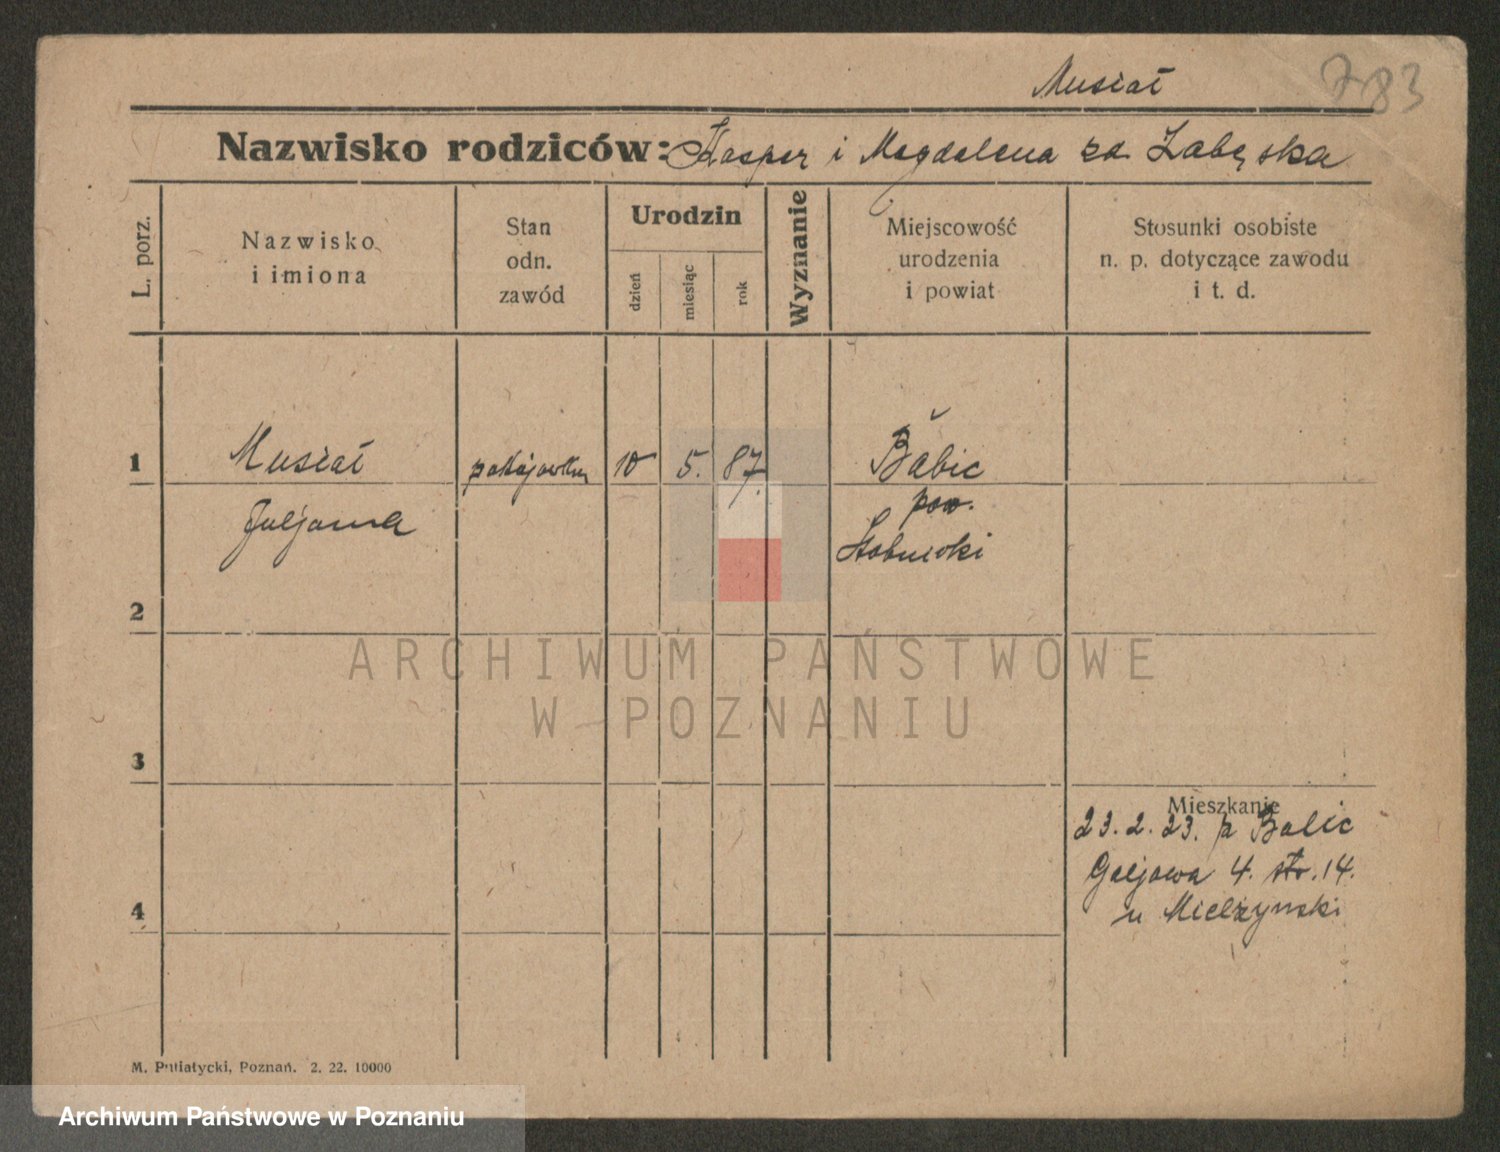 Musiał
783
Nazwisko rodziców: Kasper i Magdalena zd. Zabęska
L. porz.
Nazwisko
i imiona
Stan
odn.
zawód
Urodzin
dzień
miesiąc
rok
Wyznanie
Miejscowość
urodzenia
i powiat
Stosunki osobiste
n. p. dotyczące zawodu
i t. d.
1
Musiał
pokojówka
10
5.
87.
Babic
pow.
Juljanna
2
ARCHIWUM PAŃSTWOWE
W POZNANIU
3
Mieszkanie
23. 2. 23. p Balic
4. str. 14.
4
u Mielżynski
M. Putiatycki, Poznań. 2. 22. 10000
Archiwum Państwowe w Poznaniu